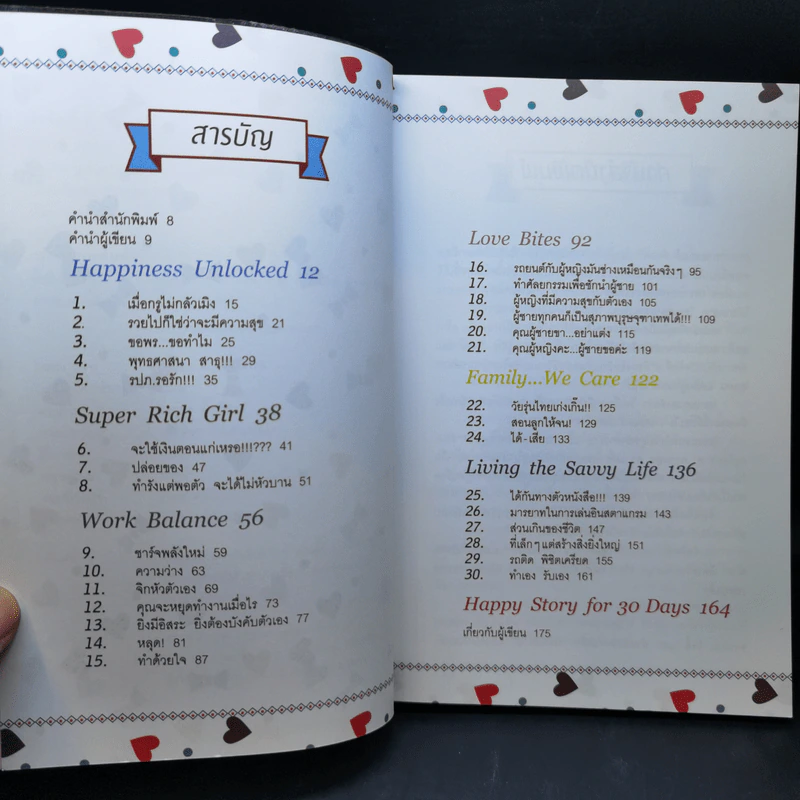 สารบัญ
คำนำสำนักพิมพ์ 8
คำนำผู้เขียน 9
Happiness Unlocked 12
1. เมื่อกรูไม่กลัวเมิง 15
2. รวยไปก็ใช่ว่าจะมีความสุข 21
3. ขอพร...ขอทำไม 25
4. พุทธศาสนา สาธุ!!! 29
5. รปภ.รอรัก!! 35
Super Rich Girl 38
6. จะใช้เงินตอนแก่เหรอ!!!??? 41
7. ปล่อยของ 47
8. ทำรังแต่พอตัว จะได้ไม่หัวบาน 51
Work Balance 56
9. ชาร์จพลังใหม่ 59
10. ความว่าง 63
11. จิกหัวตัวเอง 69
12. คุณจะหยุดทำงานเมื่อไร 73
13. ยิ่งมีอิสระ ยิ่งต้องบังคับตัวเอง 77
14. หลุด! 81
15. ทำด้วยใจ 87
Love Bites 92
16. รถยนต์กับผู้หญิงมันช่างเหมือนกันจริงๆ 95
17. ทำศัลยกรรมเพื่อชักนำผู้ชาย 101
18. ผู้หญิงที่มีความสุขกับตัวเอง 105
19. ผู้ชายทุกคนก็เป็นสุภาพบุรุษจุฑาเทพได้!!! 109
20. คุณผู้ชายขา...อย่าแต่ง 115
21. คุณผู้หญิงคะ...ผู้ชายขอค่ะ 119
Family...We Care 122
22. วัยรุ่นไทยเก่งเกิ๊น!! 125
23. สอนลูกให้จน! 129
24. ได้-เสีย 133
Living the Savvy Life 136
25. ได้กันทางตัวหนังสือ!!! 139
26. มารยาทในการเล่นอินสตาแกรม 143
27. ส่วนเกินของชีวิต 147
28. ที่เล็กๆ แต่สร้างสิ่งยิ่งใหญ่ 151
29. รถติด พิชิตเครียด 155
30. ทำเอง รับเอง 161
Happy Story for 30 Days 164
เกี่ยวกับผู้เขียน 175